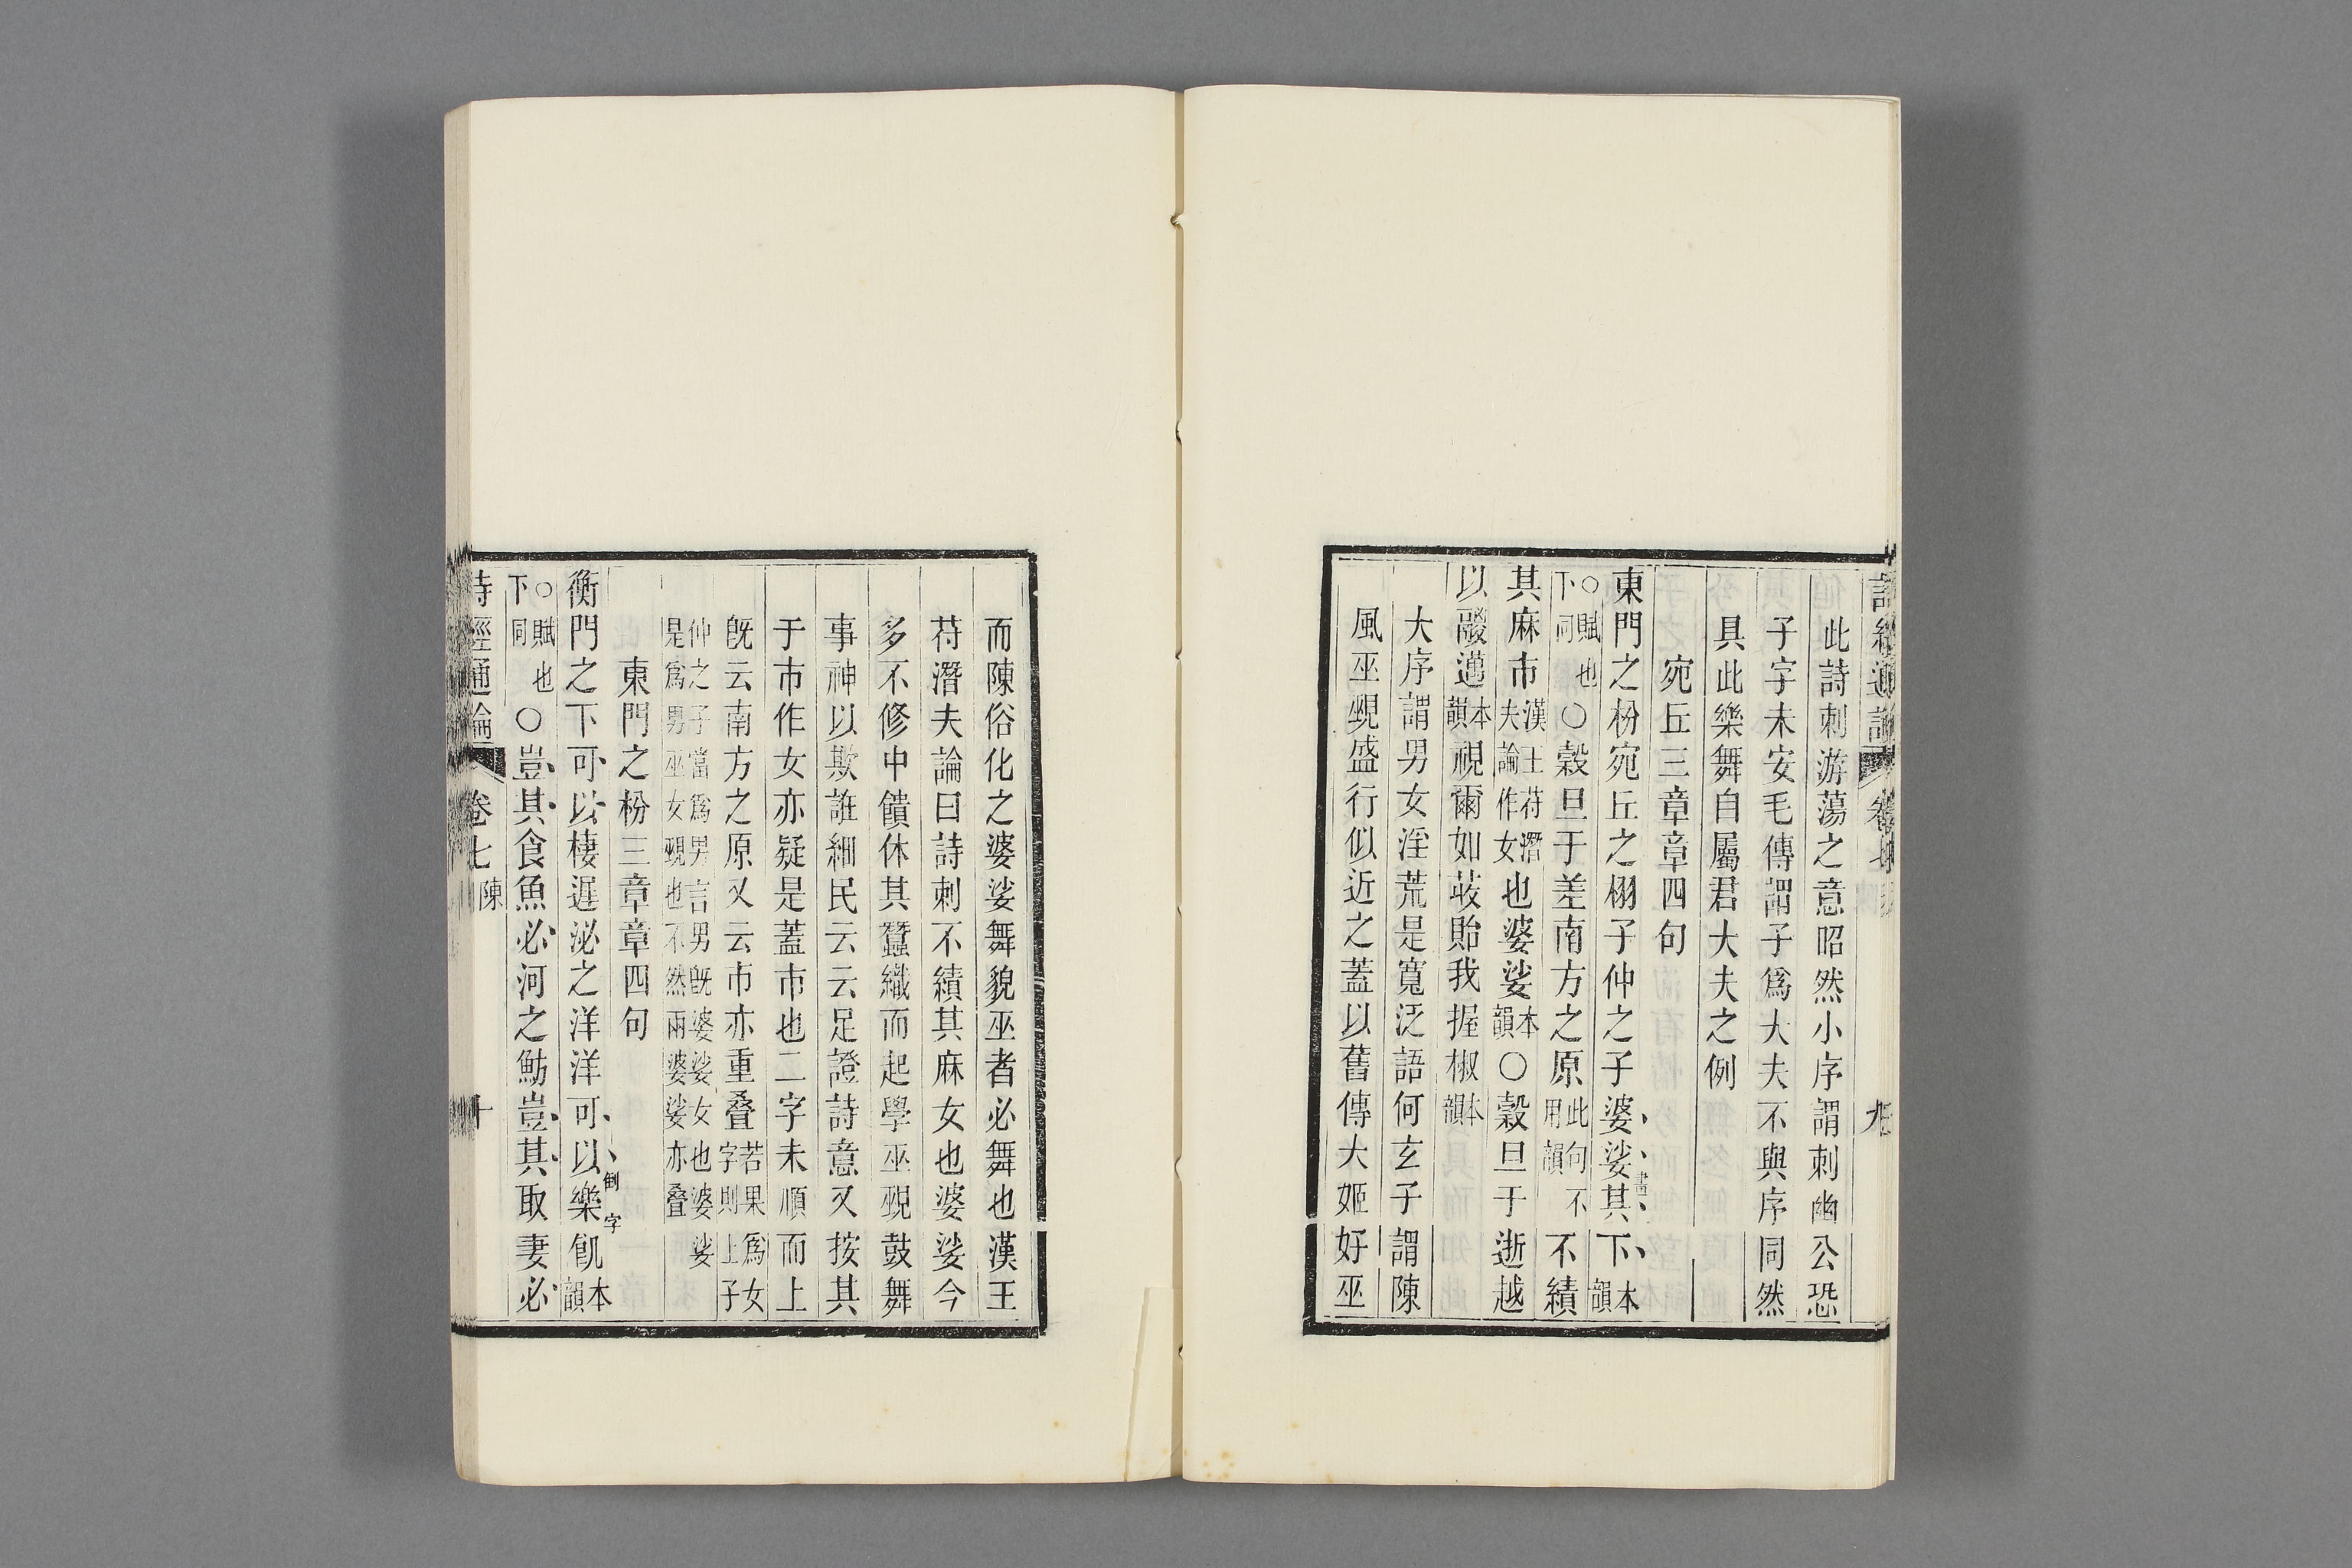 此詩刺游蕩之意昭然小序謂刺幽公恐
子字未安毛傳謂子爲大夫不與序同然
具此樂舞自屬君大夫之例
宛丘三章章四句
東門之枌宛丘之栩子仲之子婆娑其下本韻
畫
○賦也下同○穀旦于差南方之原此句不用韻不績
其麻市漢王苻潛夫論作女也婆娑本韻○穀旦于逝越
以鬷邁本韻視爾如荍貽我握椒本韻
大序謂男女淫荒是寬泛語何玄子謂陳
風巫覡盛行似近之蓋以舊傳大姬好巫
而陳俗化之婆娑舞貌巫者必舞也漢王
苻潛夫論曰詩刺不績其麻女也婆娑今
多不修中饋休其蠶織而起學巫覡鼓舞
事神以欺誑細民云云足證詩意又按其
于市作女亦疑是蓋市也二字未順而上
旣云南方之原又云市亦重叠若果爲女字則上子
仲之子當爲男言男旣婆娑女也婆娑是爲男巫女覡也不然兩婆娑亦叠
東門之枌三章章四句
衡門之下可以棲遲泌之洋洋可以樂飢本韻
倒字
○賦也下同○豈其食魚必河之魴豈其取妻必
詩經通論 卷七 陳 十